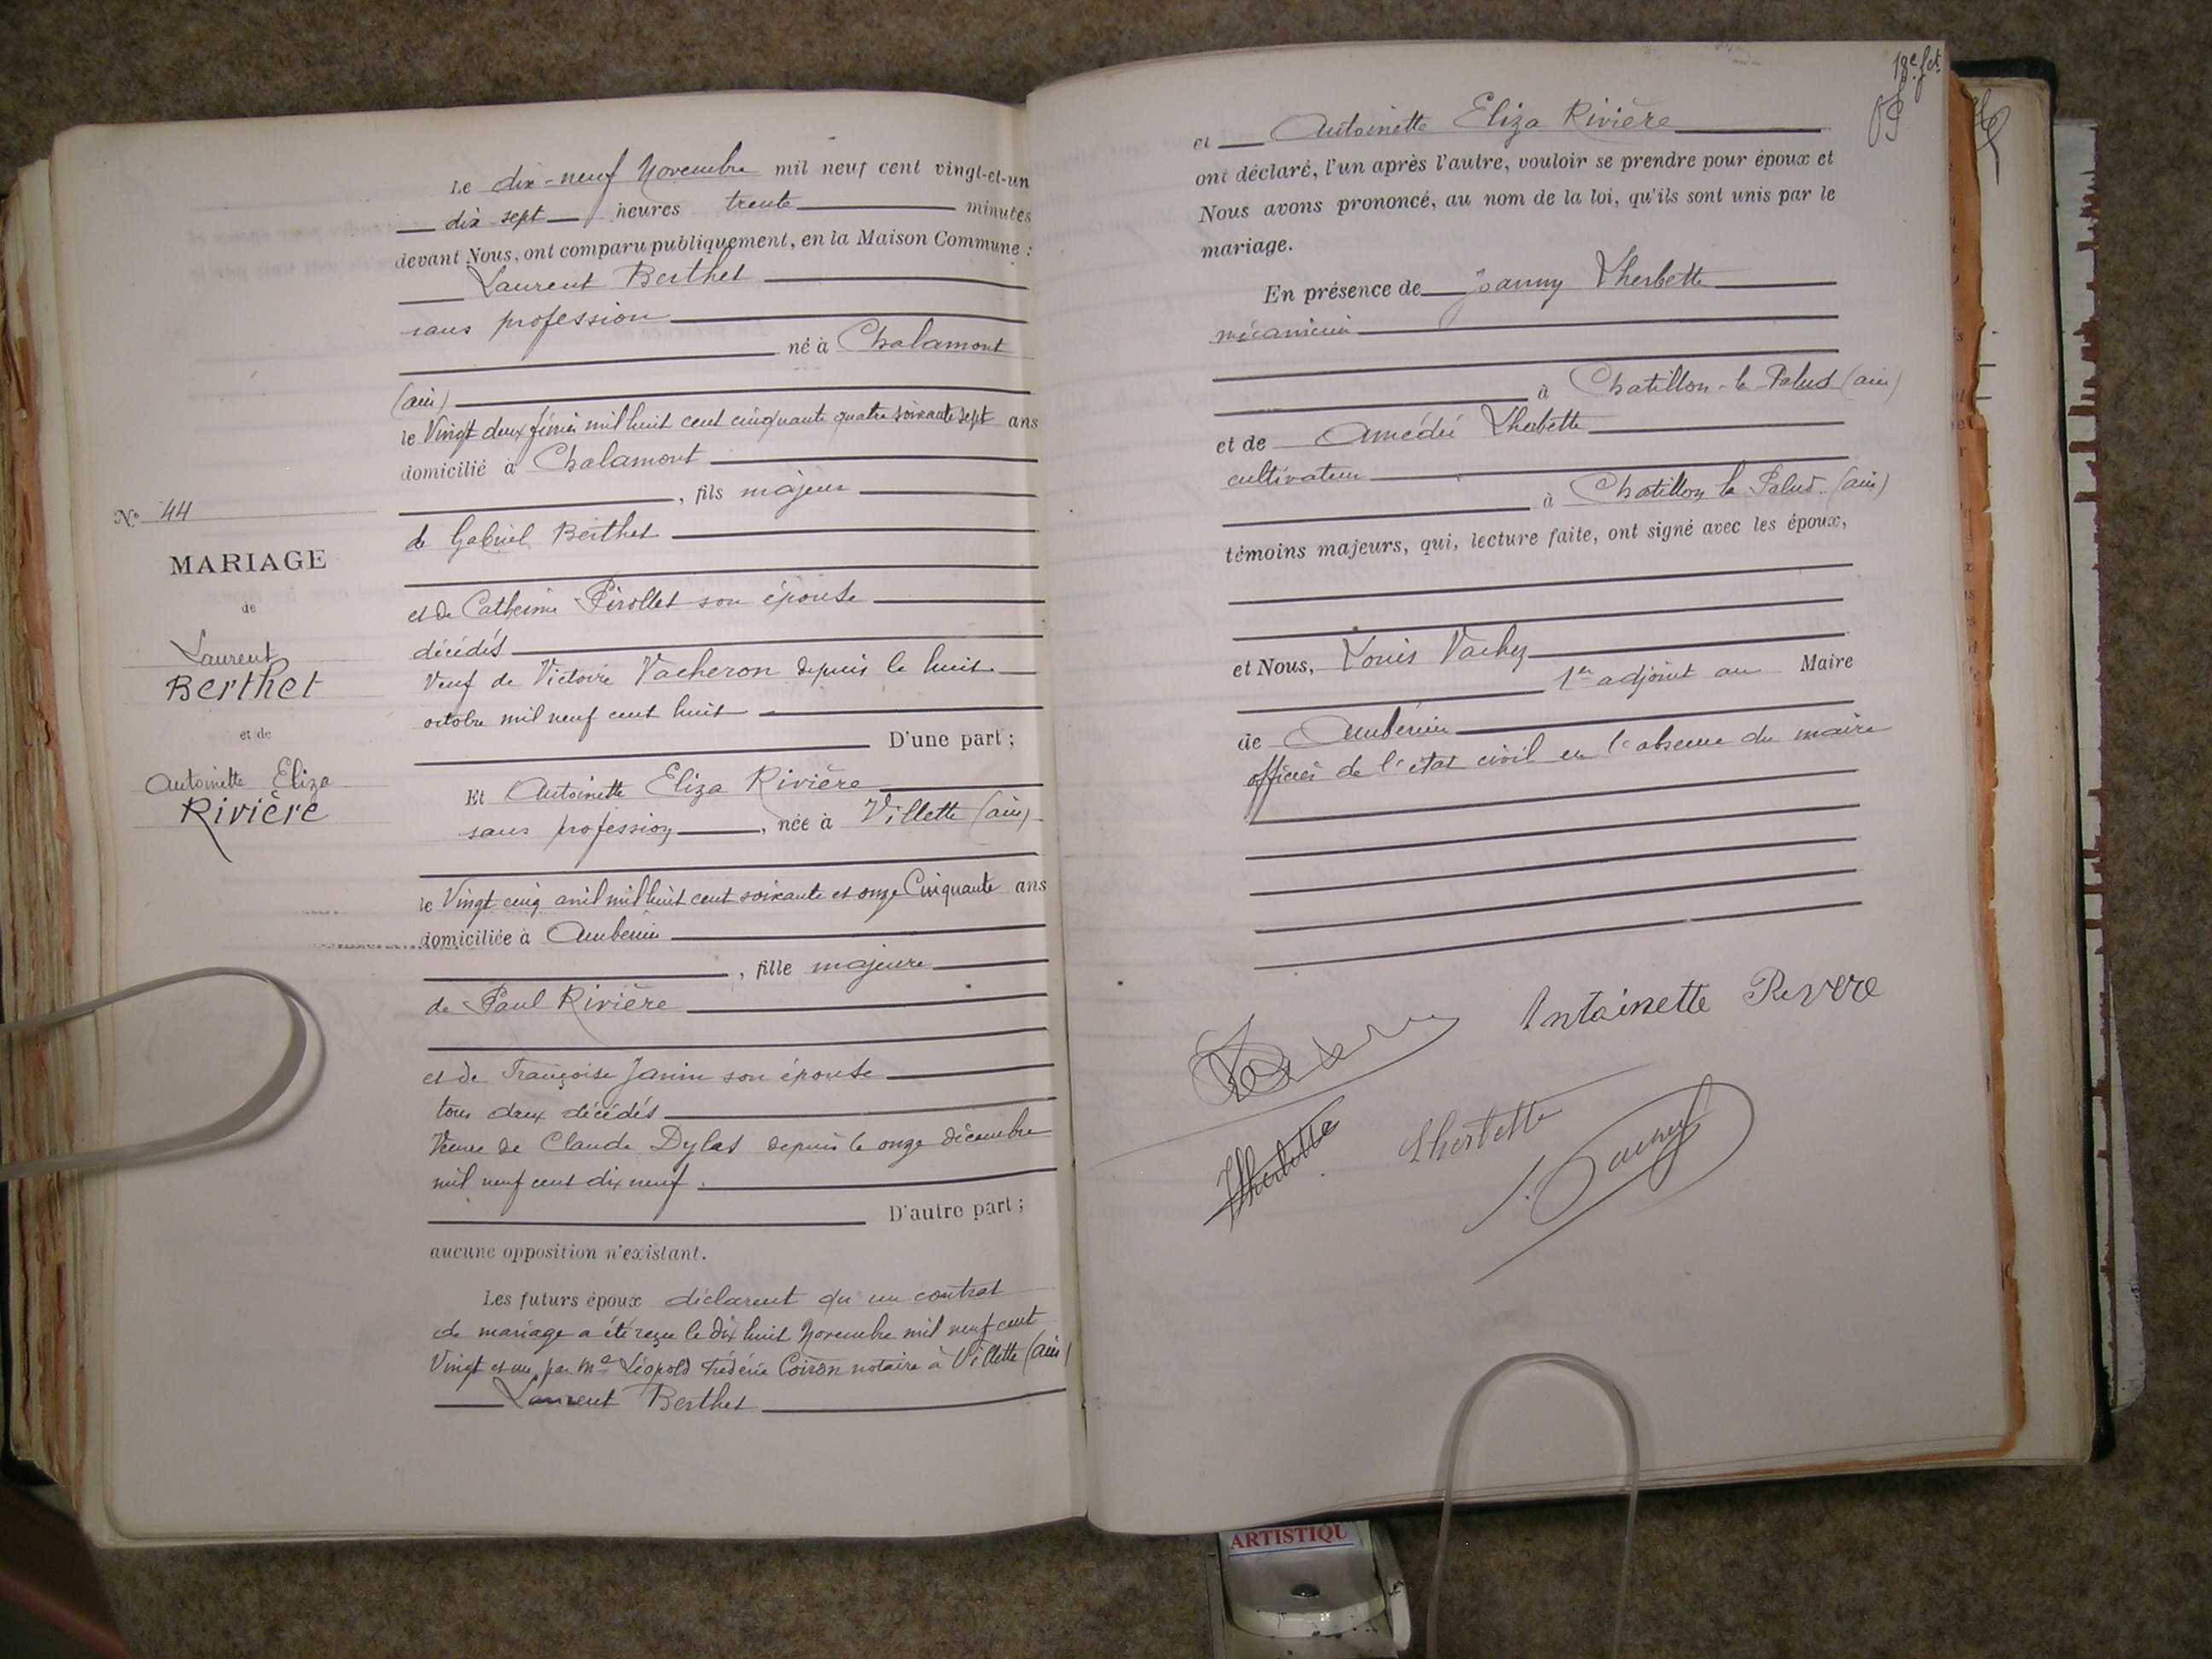 Le dix-neuf Novembre mil neuf cent vingt-et-un
dix sept heures trente minutes
devant Nous, ont comparu publiquement, en la Maison Commune :
Laurent Berthet
sans profession
né à Chalamont
(ain)
le Vingt deux février mil huit cent cinquante quatre soixante sept ans
domicilié à Chalamont
, fils majeur
de Gabriel Berthet
et de Catherine Pirollet son épouse
décédés
Veuf de Victoire Vacheron depuis le huit
octobre mil neuf cent huit
D'une part ;
Et Antoinette Eliza Rivière
sans profession, née à Villette (ain)
le Vingt cinq avril mil huit cent soixante et onze Cinquante ans
domiciliée à Ambérieu
, fille majeure
de Paul Rivière
et de Françoise Janin son épouse
tous deux décédés
Veuve de Claude Dylas depuis le onze décembre
mil neuf cent dix neuf.
D'autre part ;
aucune opposition n'existant.
Les futurs époux déclarent qu'un contrat
de mariage a été reçu le dix huit Novembre mil neuf cent
Vingt et un, par Me Léopold Frédéric Coiron notaire à Villette (ain)
Laurent Berthet
No 44
MARIAGE
de
Laurent
Berthet
et de
Antoinette Eliza
Rivière
18e fet
et Antoinette Eliza Rivière
ont déclaré, l'un après l'autre, vouloir se prendre pour époux et
Nous avons prononcé, au nom de la loi, qu'ils sont unis par le
mariage.
En présence de Joanny Lherbette
mécanicien
à Chatillon-la-Palud (ain)
et de Amédée Lherbette
cultivateur
à Chatillon la Palud (ain)
témoins majeurs, qui, lecture faite, ont signé avec les époux,
et Nous, Louis Vachez
1er adjoint au Maire
de Ambérieu
officier de l'état civil en l'absence du maire
Antoinette Rivere
Lherbette
Lherbette
ARTISTIQU